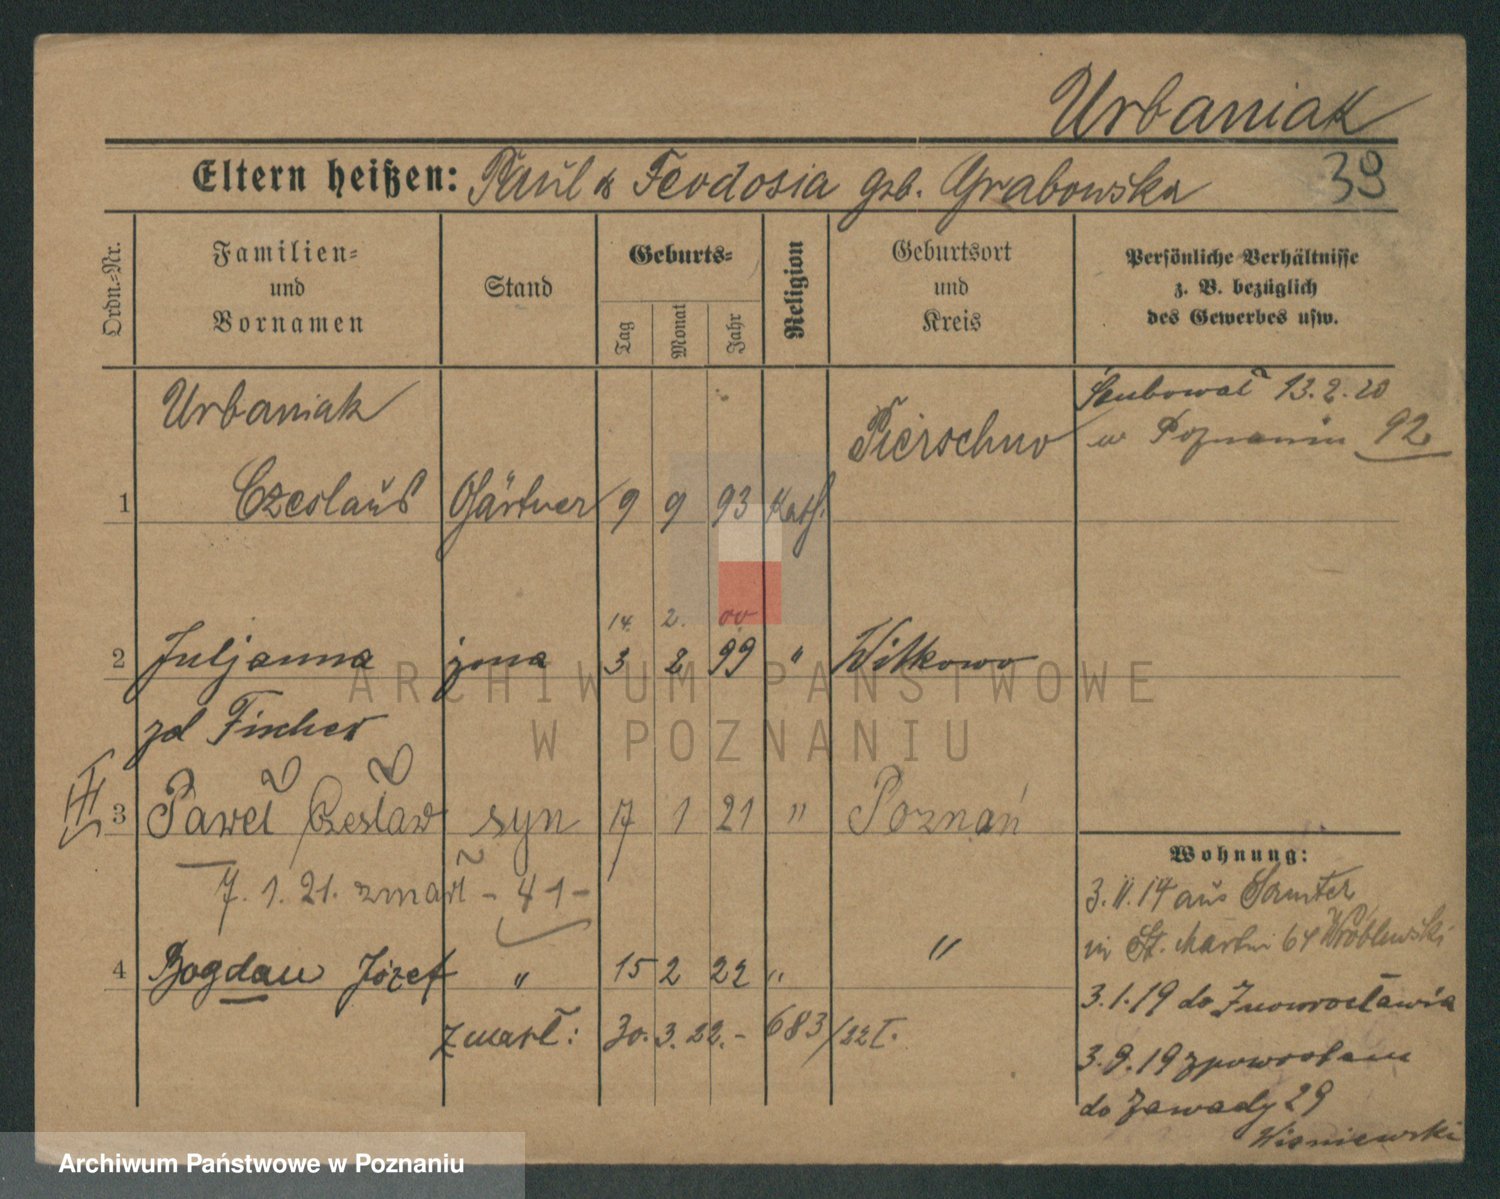 Urbaniak
39
Eltern heißen: Paul & Feodosia geb. Grabowska
Ordn.-Nr.
Familien-
und
Vornamen
Stand
Geburts-
Tag
Monat
Jahr
Religion
Geburtsort
und
Kreis
Persönliche Verhältnisse
z. B. bezüglich
des Gewerbes usw.
Urbaniak
1 Czeslaus Gärtner 9 9 93 Kath. Pierschno
Ślubował 13.2.20
w Poznaniu 92
14. 2. 00
2 Juljanna żona 3 2 99 " Witkowo
zd Fischer
III
3 Paweł Czesław syn 17 1 21 " Poznań
7. 1. 21. zmarł - 41 -
4 Bogdan Józef " 15 2 22 " "
zmarł: 30. 3. 22. - 683/22 I.
Wohnung:
3. 11. 14 aus Samter
in St. Martin 64 Wróblewski
3. 1. 19 do Inowrocławia
3. 9. 19 zpowrotem
do Zawady 29
Wisniewski
ARCHIWUM PAŃSTWOWE
W POZNANIU
Archiwum Państwowe w Poznaniu